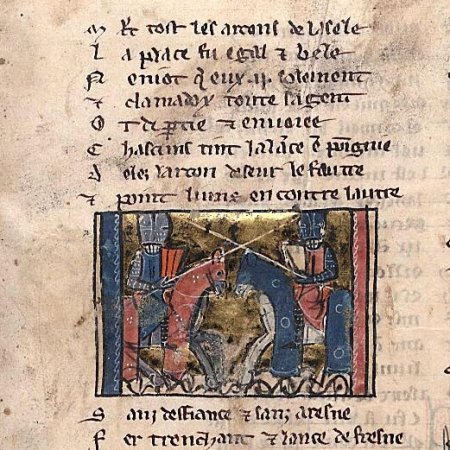 M Et tost les arcons de la sele
L a place fu egal & bele
N eniot q eux .ij. solement
& clamadex toute sa gent
O t dep tie & envoiee
C hascuns tint la lance
larcon le feutre
& point luns en contre lautre
S anz desfiance & sanz aresne
F er trenchant & lance de fresne